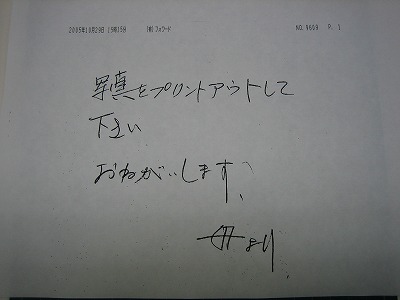 2005年10月29日 15時15分 (有)フォワード NO.9609 P. 1
写真をプリントアウトして
下さい
おねがいします
母より